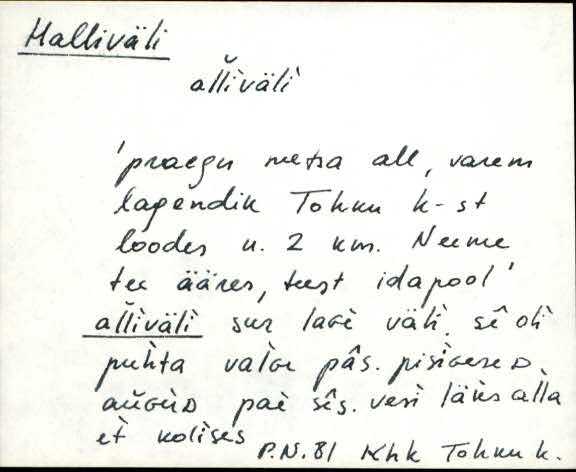 Halliväli
al̆l̀iväli
'praegu metsa all, varem
lagendik Tohnu k-st
loodes u. 2 km. Neeme
tee ääres, teest idapool'
al̆l̀iväli suʀ laɢè väli. sê oli
puhta vaĺɢe pâs. pisiɢeseᴅ
auɢùᴅ paè sîs. vesi läks alla
et kolises
P.N. 81 Khk Tohku k.